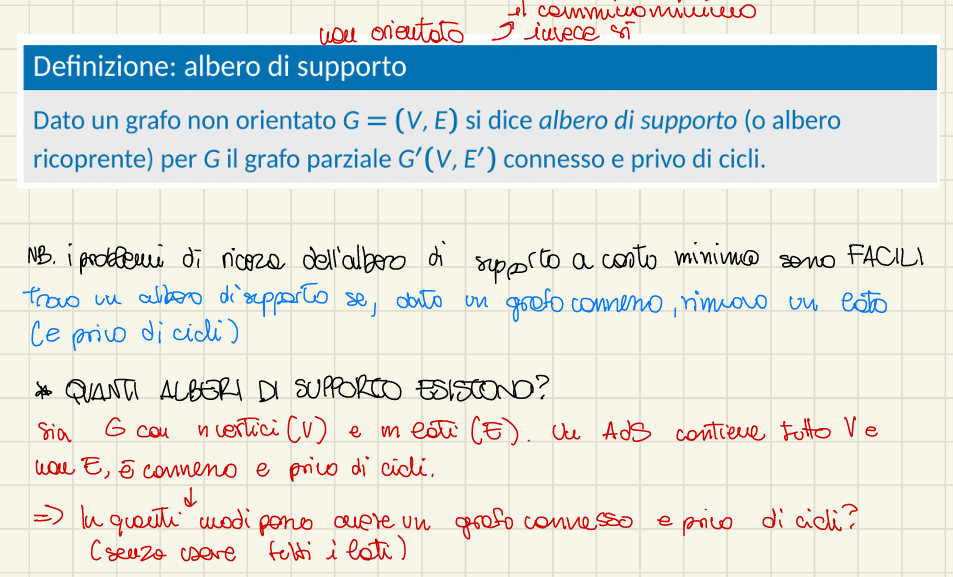 il cammino minimo
non orientato invece sì
Definizione: albero di supporto
Dato un grafo non orientato G = (V, E) si dice albero di supporto (o albero
ricoprente) per G il grafo parziale G′(V, E′) connesso e privo di cicli.
NB. i problemi di ricerca dell'albero di supporto a costo minimo sono FACILI
trovo un albero di supporto se, dato un grafo connesso, rimuovo un lato
(e privo di cicli)
* QUANTI ALBERI DI SUPPORTO ESISTONO?
Sia G con n vertici (V) e m lati (E). Un AdS contiene tutto V e
non E, è connesso e privo di cicli.
=> In quanti modi posso avere un grafo connesso e privo di cicli?
(senza usare tutti i lati)